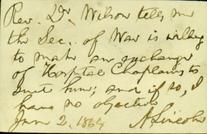 Rev. Dr. Wilson tells me
the Sec. of War is willing
to make an exchange
of Hospital Chaplains to
suit him; and if so, I
have no objection
Jan 2. 1864 A. Lincoln